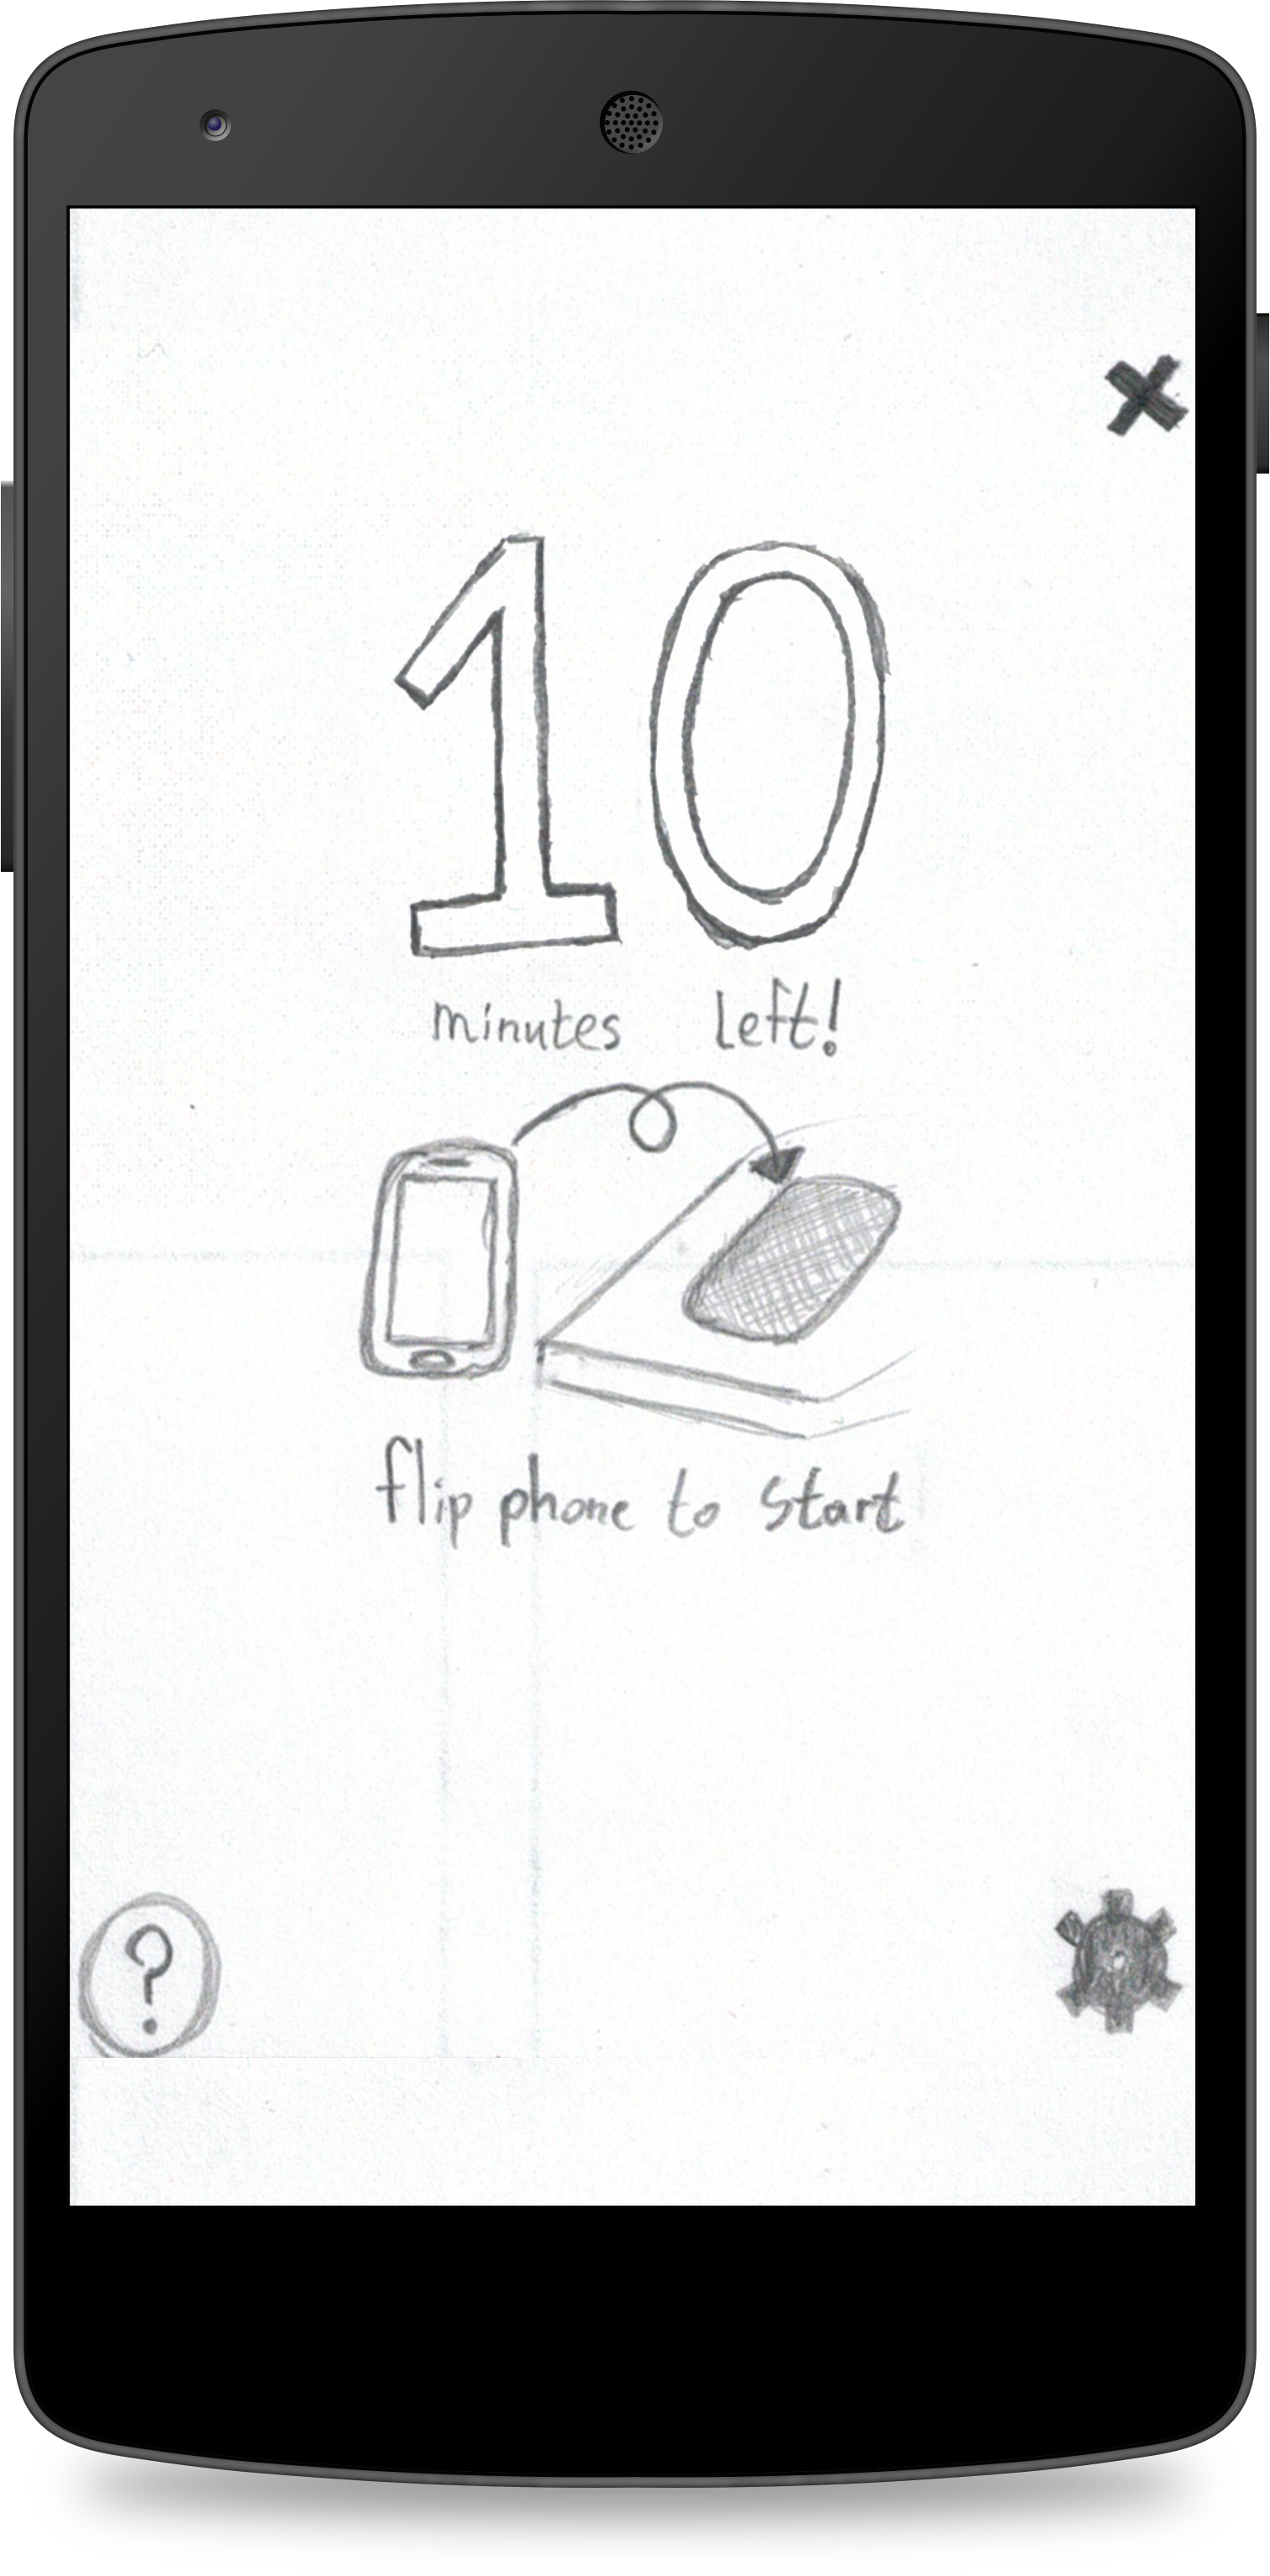 10
minutes left!
flip phone to start
?